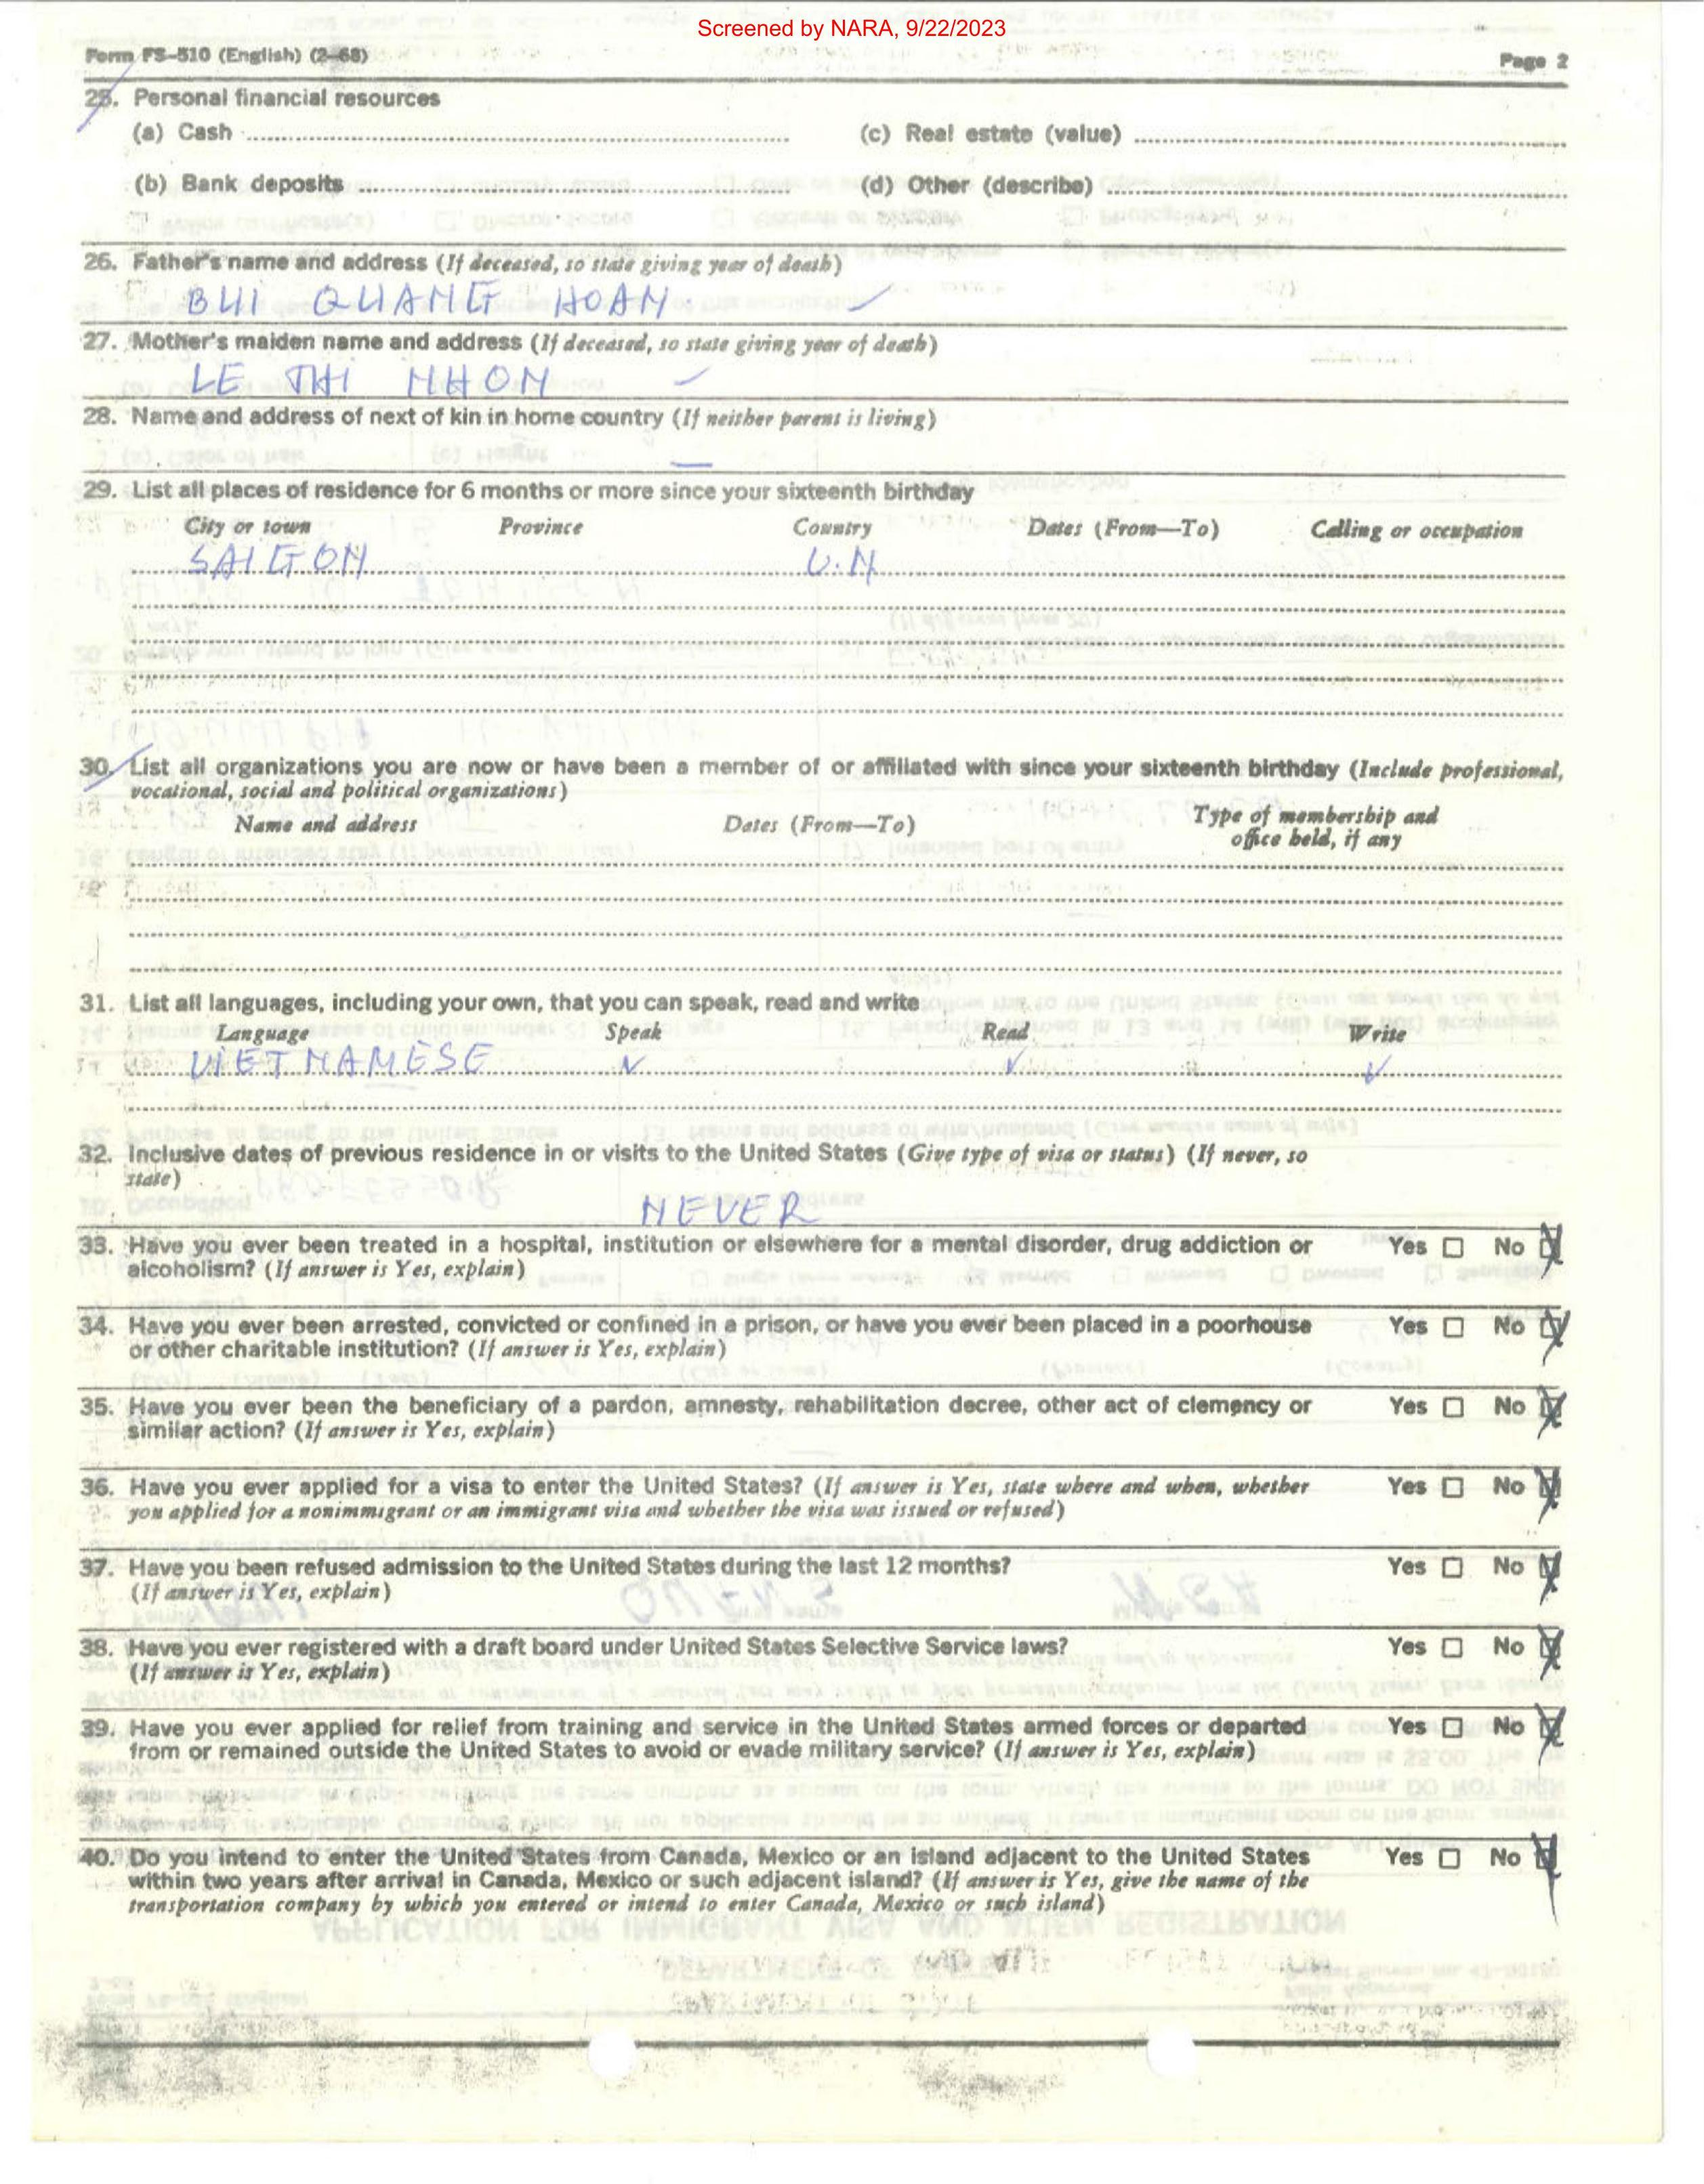 Screened by NARA, 9/22/2023
Form FS-510 (English) (2-68) Page 2
25. Personal financial resources
(a) Cash (c) Real estate (value)
(b) Bank deposits (d) Other (describe)
26. Father's name and address (If deceased, so state giving year of death)
BUI QUANG HOAN
27. Mother's maiden name and address (If deceased, so state giving year of death)
LE THI NHON
28. Name and address of next of kin in home country (If neither parent is living)
—
29. List all places of residence for 6 months or more since your sixteenth birthday
City or town Province Country Dates (From—To) Calling or occupation
SAIGON V.N
30. List all organizations you are now or have been a member of or affiliated with since your sixteenth birthday (Include professional,
vocational, social and political organizations)
Name and address Dates (From—To) Type of membership and
office held, if any
31. List all languages, including your own, that you can speak, read and write
Language Speak Read Write
VIETNAMESE ✓ ✓ ✓
32. Inclusive dates of previous residence in or visits to the United States (Give type of visa or status) (If never, so
state)
NEVER
33. Have you ever been treated in a hospital, institution or elsewhere for a mental disorder, drug addiction or Yes ☐ No ☒
alcoholism? (If answer is Yes, explain)
34. Have you ever been arrested, convicted or confined in a prison, or have you ever been placed in a poorhouse Yes ☐ No ☒
or other charitable institution? (If answer is Yes, explain)
35. Have you ever been the beneficiary of a pardon, amnesty, rehabilitation decree, other act of clemency or Yes ☐ No ☒
similar action? (If answer is Yes, explain)
36. Have you ever applied for a visa to enter the United States? (If answer is Yes, state where and when, whether Yes ☐ No ☒
you applied for a nonimmigrant or an immigrant visa and whether the visa was issued or refused)
37. Have you been refused admission to the United States during the last 12 months? Yes ☐ No ☒
(If answer is Yes, explain)
38. Have you ever registered with a draft board under United States Selective Service laws? Yes ☐ No ☒
(If answer is Yes, explain)
39. Have you ever applied for relief from training and service in the United States armed forces or departed Yes ☐ No ☒
from or remained outside the United States to avoid or evade military service? (If answer is Yes, explain)
40. Do you intend to enter the United States from Canada, Mexico or an island adjacent to the United States Yes ☐ No ☒
within two years after arrival in Canada, Mexico or such adjacent island? (If answer is Yes, give the name of the
transportation company by which you entered or intend to enter Canada, Mexico or such island)